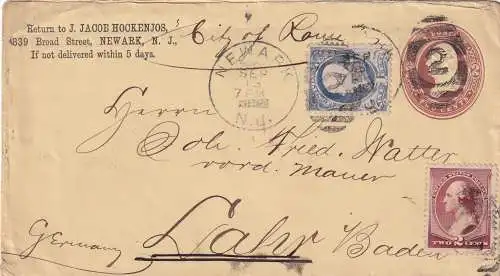 Return to J. JACOB HOCKENJOS,
839 Broad Street, NEWARK, N. J.,
If not delivered within 5 days.
City of Rome
NEWARK
SEP
7 PM
N.J.
2
Herrn
Joh. Fried. Watter
Maurer
Lahr Baden
Germany
TWO CENTS